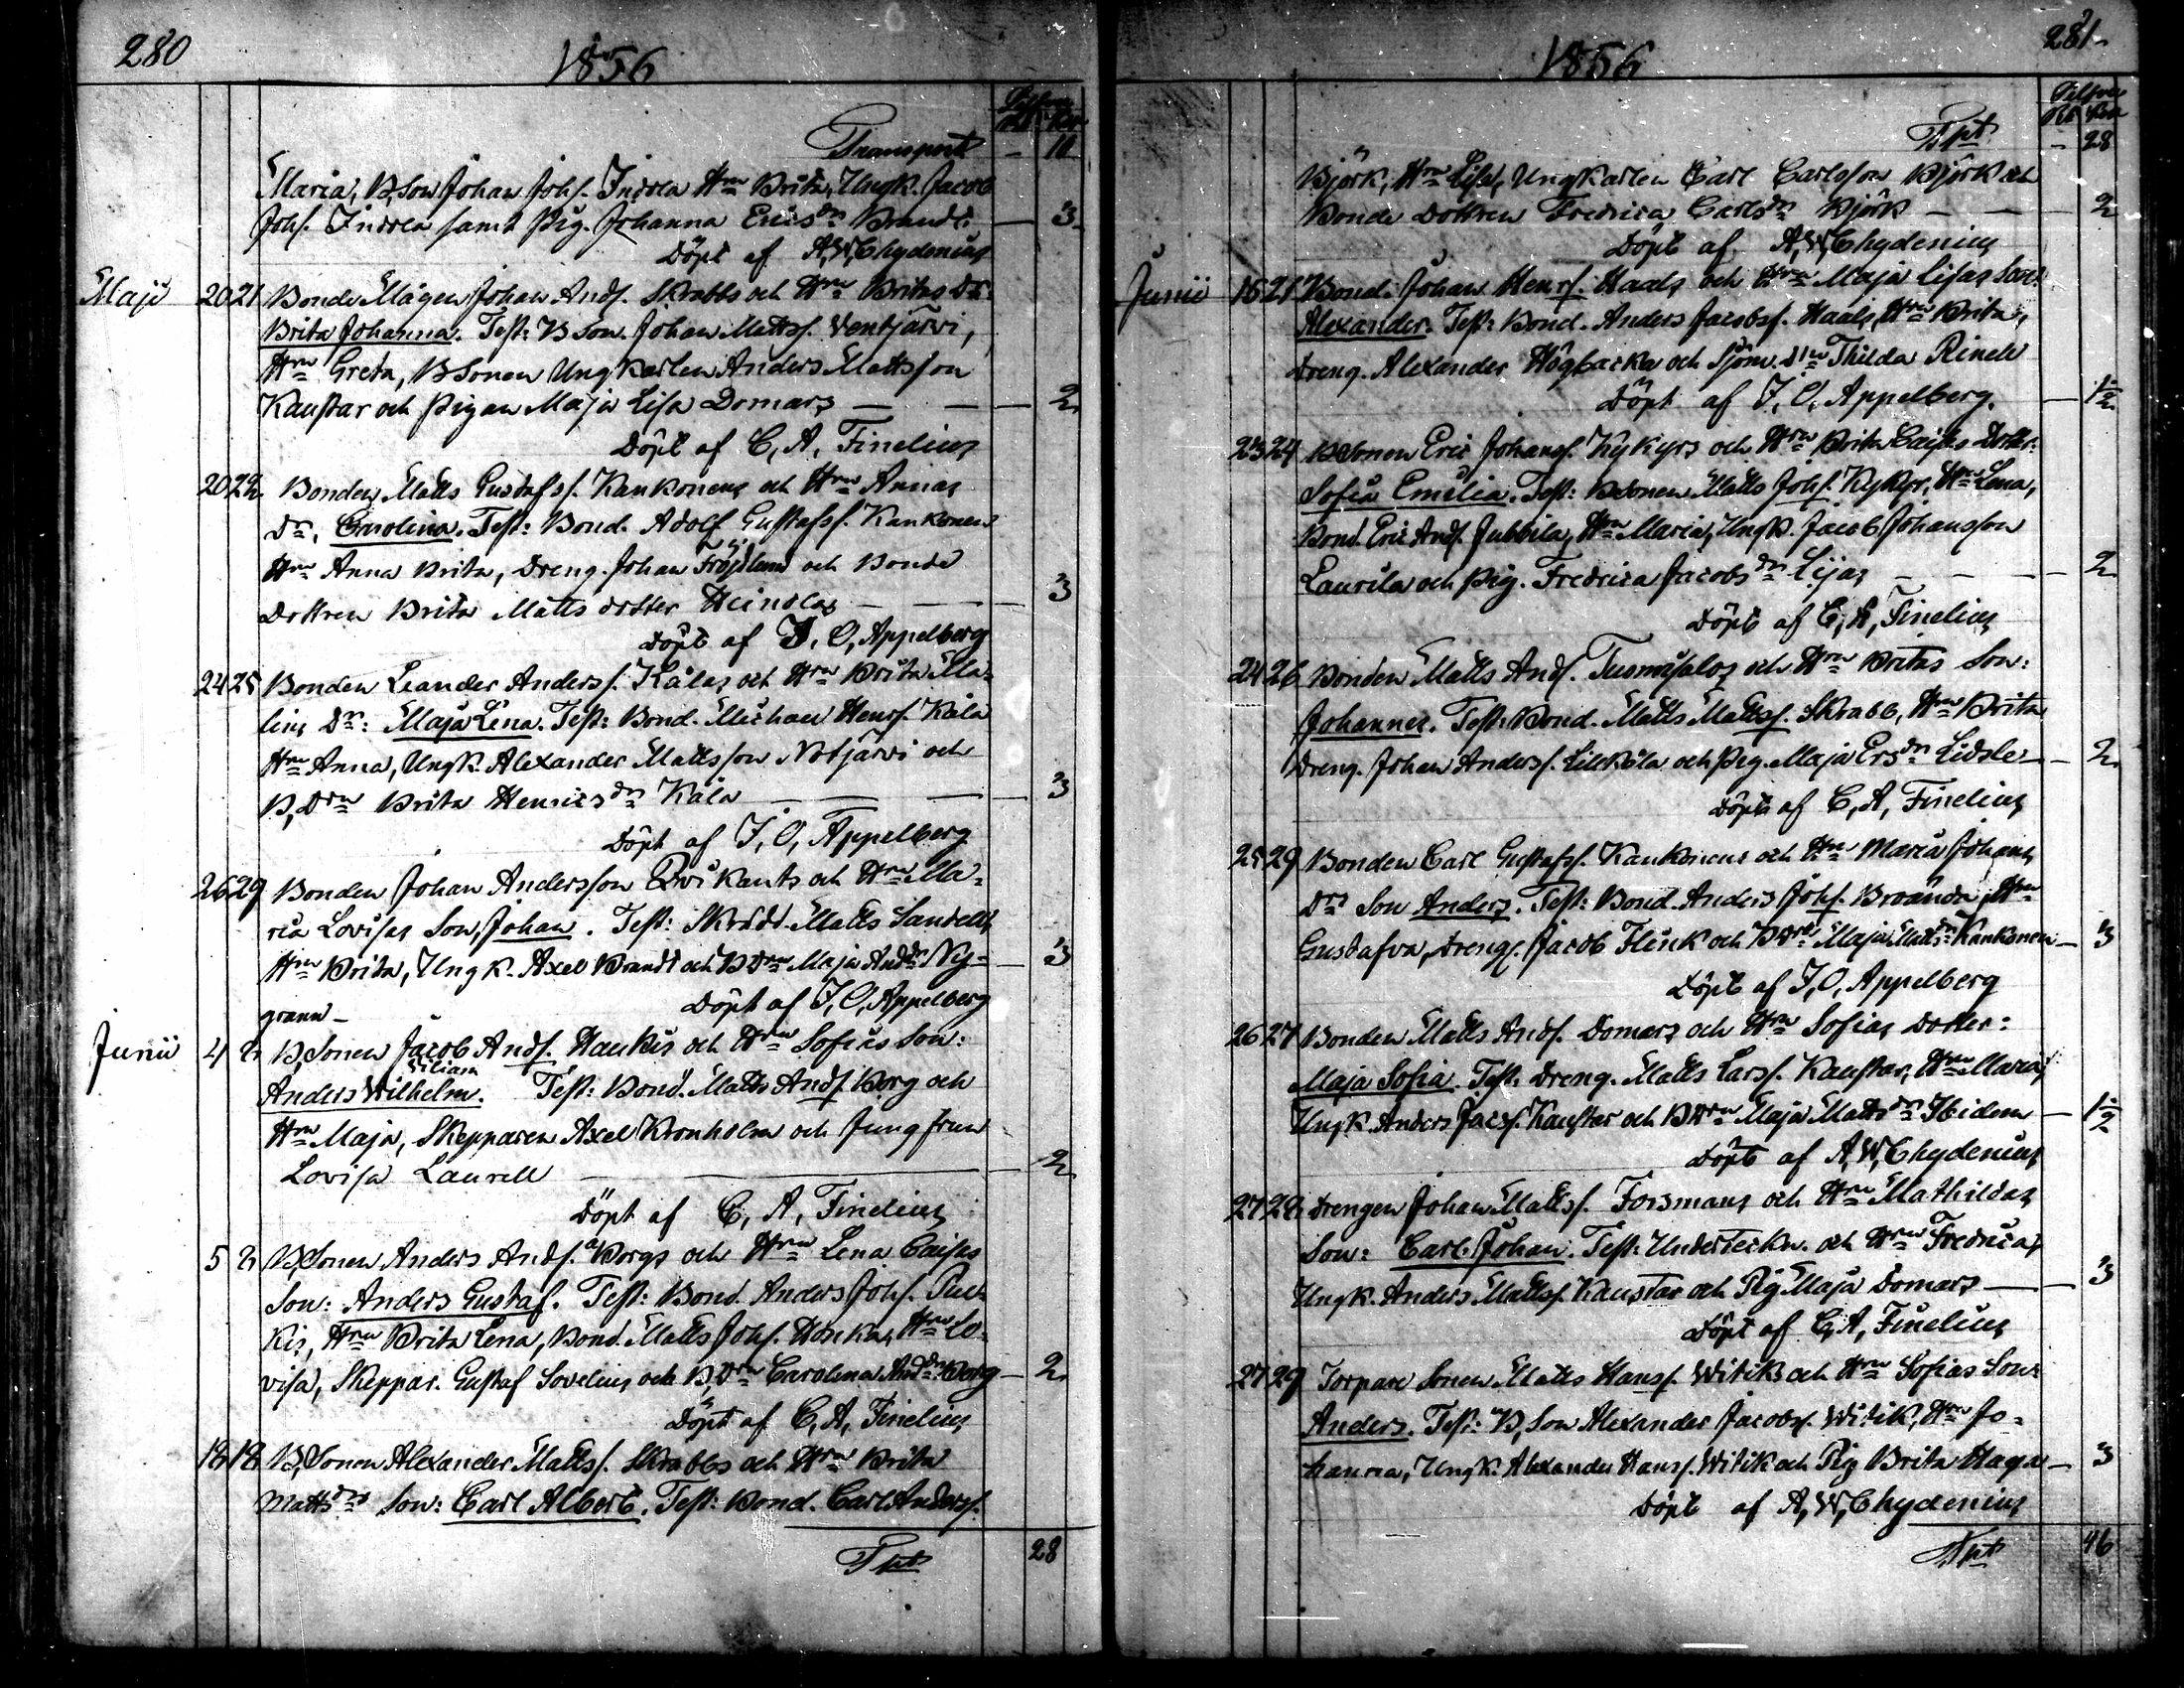 280
1856
Transport - 10
Maria, B,Son Johan Johs. Indola Hru Brita, Ungk. Jacob
Johs. Indola samt Pig. Johanna Ericsdr Brandt — 3
Döpt af A,W,Chydenius
Maji 20 21 Bonde Mågen Johan Ands. Skrabbs och Hru Britas Dr:
Brita Johanna. Test: B Son. Johan Mattss. Ventjärvi,
Hru Greta, BSonen Ungkarlen Anders Mattsson
Kaustar och Pigan Maja Lisa Domars — — 2
Döpt af C, A, Finelius
20 22 Bonden Matts Gustafss. Kankonens och Hru Annas
Dr, Carolina. Test: Bond. Adolf Gustafss. Kankonen
Hru Anna Brita, Dreng. Johan Fröjdlund och Bonde
Dottren Brita Matts dotter Heinolas — — 3
Döpt af J, O, Appelberg
24 25 Bonden Leander Anderss. Kålas och Hru Brita Ma-
lins Dr: Maja Lena. Test: Bond. Michael Henrs. Kåla
Hru Anna, Ungk. Alexander Mattsson Notjärvi och
B,Dru Brita Henricsdr Kåla — — 3
Döpt af J, O, Appelberg
26 29 Bonden Johan Andersson Qvikants och Hru Ma-
ria Lovisas Son, Johan. Test: Skrädd. Matts Sandell,
Hru Brita, Ungk. Axel Brandt och BDru Maja Andsdr Ny- — 3
grann — Döpt af J, O, Appelberg
Junii 4 B,Sonen Jacob Ands. Haukis och Hru Sofias Son:
Viliam
Anders Wilhelm. Test: Bond. Matts Ands. Borg och
Hru Maja, Skepparen Axel Kronholm och Jungfrun
Lovisa Laurell — 2
Döpt af C, A, Finelius
5 B,Sonen Anders Ands. Borgs och Hru Lena Caisas
Son: Anders Gustaf. Test: Bond. Anders Johs.
Hru Brita Lena, Bond. Matts Johs. Honka, Hru Lo-
visa, Skeppar. Gustaf Sovelius och B,Dru Carolina Andsdr Borg — 2
Döpt af C, A, Finelius
18 18 B,Sonen Alexander Mattss. Skrabbs och Hru Brita
Mattsdrs Son: Carl Albert. Test: Bond. Carl Anderss.
Tpt 28
281
1856
Tpt - 28
Björk, Hru Lisa, Ungkarlen Carl Carlsson Björk och
Bonde Dottren Fredrica Carlsdr Björk — — 2
Döpt af A,W,Chydenius
Junii 15 21 Bond. Johan Henrs. Haals och Hru Maja Lisas Son:
Alexander. Test: Bond. Anders Jacobss. Haals, Hru Brita,
Dreng. Alexander Högbacka och Sjöm. Thilda Rinell
Döpt af J, O, Appelberg. — 1½
23 24 BSonen Eric Johanss. Kykyrs och Hru Brita Caisas Dotter:
Sofia Emelia. Test: BSonen Matts Johs. Kykyr, Hru Lena,
Bond. Eric Ands. Jubbila, Hru Maria, Ungk. Jacob Johansson
Laurila och Pig. Fredrica Jacobsdr Lijas — — 2
Döpt af C, A, Finelius
24 26 Bonden Matts Ands. och Hru Britas Son:
Johannes. Test: Bond. Matts Mattss. Skrabb, Hru Brita
Dreng. Johan Anderss. Lillkåla och Pig. Maja Ersdr Lidsle — 2
Döpt af C, A, Finelius
25 29 Bonden Carl Gustafss. Kankonens och Hru Maria Johans
Drs Son Anders. Test: Bond. Anders Johs. Hru
Gustafva, Drengs. Jacob Flink och BDru Maja Mattsdr Kankonen — 3
Döpt af J, O, Appelberg
26 27 Bonden Matts Ands. Domars och Hru Sofias Dotter:
Maja Sofia. Test: Dreng. Matts Larss. Kaustar, Hru Maria,
Ungk. Anders Jacss. Kaustar och BDru Maja Mattsdr Ibidem — 1½
Döpt af A,W,Chydenius
27 28 Drengen Johan Mattss. Forsmans och Hru Mathildas
Son: Carl Johan. Test: Underteckn. och Hru Fredrica,
Ungk. Anders Mattss. Kaustar och Pig Maja Domars — 3
Döpt af C, A, Finelius
27 29 Torpare Sonen Matts Hanss. Witiks och Hru Sofias Son:
Anders. Test: B,Son Alexander Jacobss. Witik, Hru Jo-
hanna, Ungk. Alexander Hanss. Witik och Pig Brita Haga — 3
Döpt af A,W,Chydenius
Tpt 46